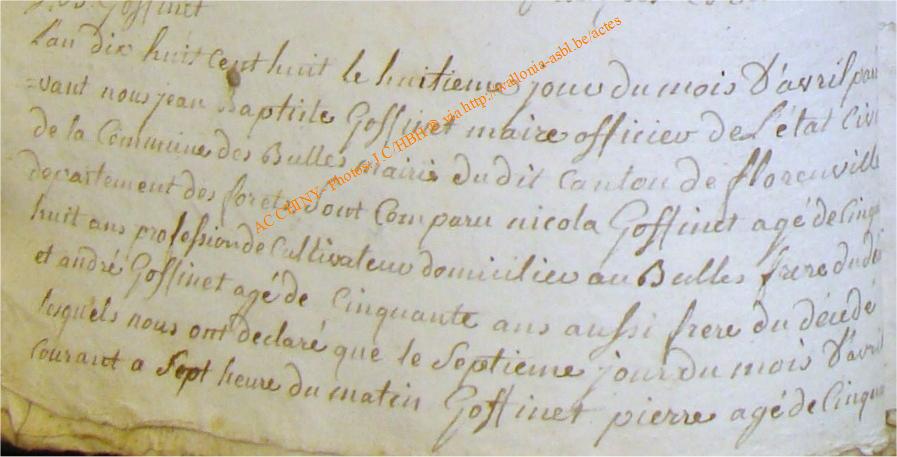 Goffinet
L'an dix huit cent huit le huitieme jour du mois d'avril par
=vant nous jean Baptiste Goffinet maire officier de L'état Civi
de la Commune des Bulles mairie dudit canton de florenville
departement des forets sont Comparu nicola Goffinet agé de Cinqu
huit ans profession de Cultivateur domicilier au Bulles frere du dé
et andré Goffinet agé de Cinquante ans aussi frere du décedé
lesquels nous ont declaré que le Septieme jour du mois d'avril
courant a Sept heure du matin Goffinet pierre agé de Cinqua
AC CHINY- Photos: J C/HBH © via http://wallonia-asbl.be/actes